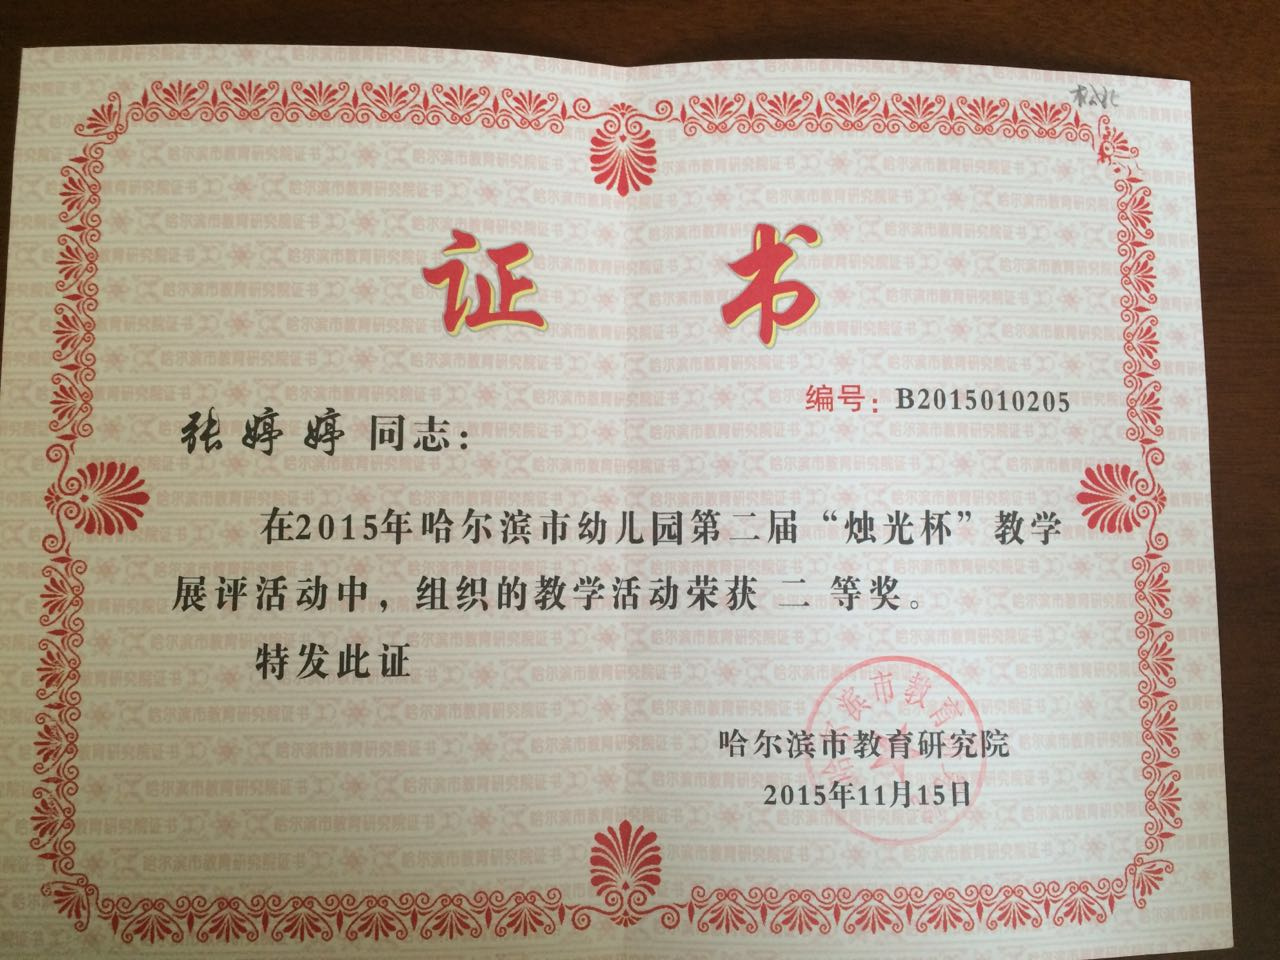 证 书
编号：B2015010205
张婷婷 同志：
在2015年哈尔滨市幼儿园第二届“烛光杯”教学
展评活动中，组织的教学活动荣获 二 等奖。
特发此证
哈尔滨市教育研究院
2015年11月15日